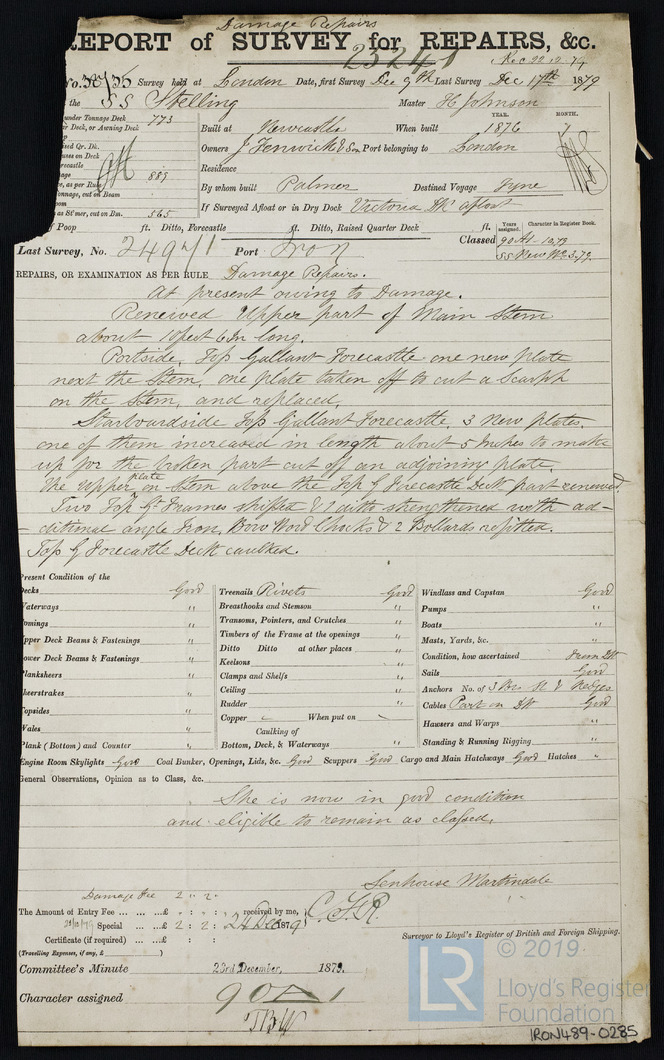 Damage Repairs
REPORT of SURVEY for REPAIRS, &c.
23241
Rec 22.12.79
No. Survey held at London Date, first Survey Dec 9th Last Survey Dec 17th 1879
the SS Stelling Master H Johnson
under Tonnage Deck 773
Deck, or Awning Deck
YEAR. MONTH.
Built at Newcastle When built 1876 7
Owners J Fenwick & Son Port belonging to London
Residence
889
as per Rule
Tonnage, cut on Beam
By whom built Palmer Destined Voyage Tyne
as St'mer, cut on Bm. 565
If Surveyed Afloat or in Dry Dock Victoria Dk afloat
Poop ft. Ditto, Forecastle ft. Ditto, Raised Quarter Deck ft.
Years assigned. Character in Register Book.
Last Survey, No. Port Iron Classed 90A1-10.79
SS New No 3.79.
REPAIRS, OR EXAMINATION AS PER RULE Damage Repairs.
At present owing to Damage.
Renewed Upper part of Main Stem
about 10 feet 6 In long.
Portside, Top Gallant Forecastle one new plate
next the Stem, one plate taken off to cut a Scarph
on the Stem, and replaced.
Starboardside Top Gallant Forecastle, 3 New plates,
one of them increased in length about 5 Inches to make
up for the broken part cut off an adjoining plate.
The Upper plate on Stem above the Top G Forecastle Deck part renewed.
Two Top Gt Frames shifted & 2 ditto strengthened with ad-
-ditional angle Iron, Bow Wood Chocks & 2 Bollards refitted.
Top G Forecastle Deck caulked.
Present Condition of the
Decks Good
Waterways "
Comings "
Upper Deck Beams & Fastenings "
Lower Deck Beams & Fastenings "
Planksheers "
Sheerstrakes "
Topsides "
Wales "
Plank (Bottom) and Counter "
Treenails Rivets Good
Breasthooks and Stemson "
Transoms, Pointers, and Crutches "
Timbers of the Frame at the openings "
Ditto Ditto at other places "
Keelsons "
Clamps and Shelfs "
Ceiling "
Rudder "
Copper - When put on -
Caulking of
Bottom, Deck, & Waterways "
Windlass and Capstan Good
Pumps "
Boats "
Masts, Yards, &c. "
Condition, how ascertained From Dk
Sails Good
Anchors No. of 3 Brs St & Kedges
Cables Part on Dk Good
Hawsers and Warps "
Standing & Running Rigging "
Engine Room Skylights Good Coal Bunker, Openings, Lids, &c. Good Scuppers Good Cargo and Main Hatchways Good Hatches "
General Observations, Opinion as to Class, &c.
She is now in good condition
and eligible to remain as classed.
Senhouse Martindale
Damage Fee 2 : 2 .
The Amount of Entry Fee ... ... ...£ : : received by me,
Special ... ...£ 2 : 2 : 24 Dec 1879
Certificate (if required) ... ...£ : :
(Travelling Expenses, if any, £ )
Surveyor to Lloyd's Register of British and Foreign Shipping.
Committee's Minute 23rd December, 1879.
Character assigned 90A1
© 2019
LR
Lloyd's Register
Foundation
IRON489-0285